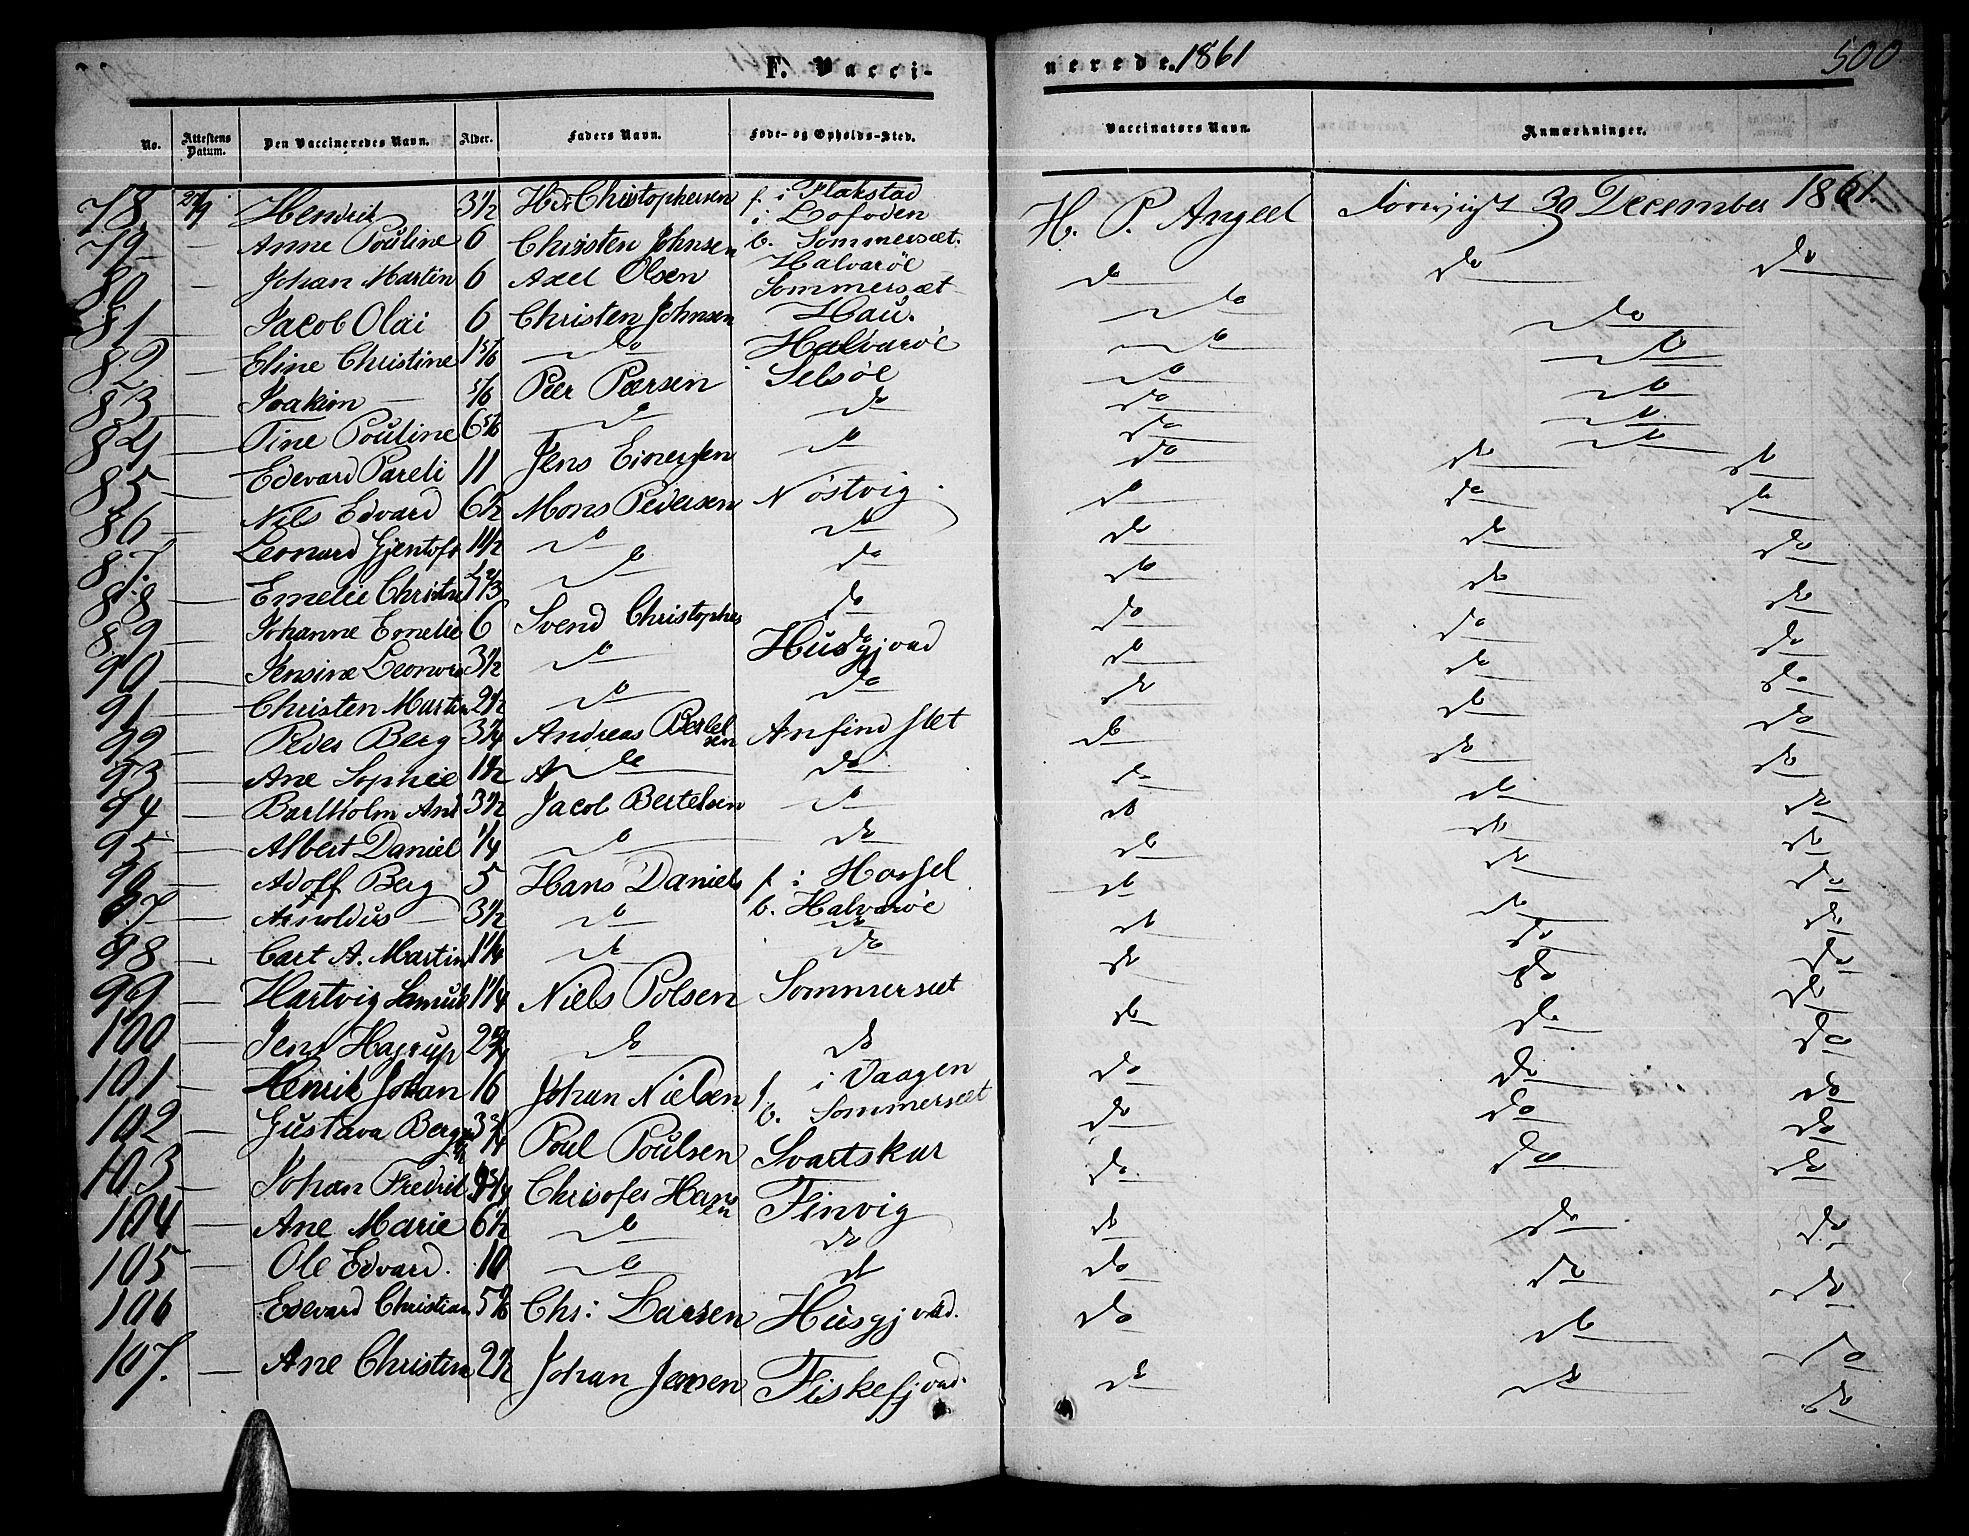 F. Vacci-
nerede. 1861
500
No. Attestens Datum. Den Vaccineredes Navn. Alder. Faders Navn. Føde- og Opholds-Sted. Vaccinators Navn. Anmærkninger.
78. 27/9 Hendrik 3 1/2 Christophersen f. i Flakstad i Lofoden H. P. Angell 30 December 1861.
79 — Anne Pouline 6 Christen Johnsen b. Sommersæt. do do do
80 — Johan Martin 6 Axel Olsen Halvarøe do do
81 — Jacob Olai 6 Christen Johnsen Sommersæt do do
82 — Eline Christine 1 5/6 do Hau. do do
83 — Joakim — 5/6 Peer Pærsen Halvarøe do do
84 — Tine Pouline 6 5/6 do Selsøe do do
85 — Edevard Pareli 11 Jens Einersen do do do do
86 — Nils Edvard 6 1/2 Mons Pedersen Nøstvig do do do
87. — Leonard Gjentoft 1 1/2 do do do do do
88 — Emelie Christine do do do do do
89 — Johanne Emelie 6 Svend Christophes do do do do
90 — Jensine Leonora 3 1/2 do Husgjord do do do
91 — Christen Martin 2 1/2 do do do do do
92 — Peder Berg 3 1/4 Andreas Bertelsen Anfindslet do do do
93 — Ane Sophie 1 1/2 do do do do do
94 — Bartholm And 3 1/2 Jacob Bertelsen do do do do
95 — Albert Daniel 1/4 do do do do do
96 — Adolf Berg 5 Hans Daniels f. i Hassel do do do
97 — Arnoldus — 3 1/2 do b. Halvarøe do do do
98 — Carl A. Martin 1 1/4 do do do do do
99 — Hartvig Samuel 1 1/4 Niels Polsen Sommersæt do do do
100 — Jens Hagrup 2 3/4 do do do do do
101 — Henrik Johan 16 Johan Nielsen f. i Vaagen b. Sommersæt do do do
102 — Gustava Berg 3 Poul Poulsen Svartskar do do do
103 — Johan Fredrik Chrisofer Hansen Finvig do do do
104 — Ane Marie 6 1/2 do do do do do
105 — Ole Edvard. 10 do do do do do
106 — Edevard Christian 5 1/6 Chr: Larsen Husgjord. do do do
107. — Ane Christine 2 1/2 Johan Jensen Fiskefjord. do do do